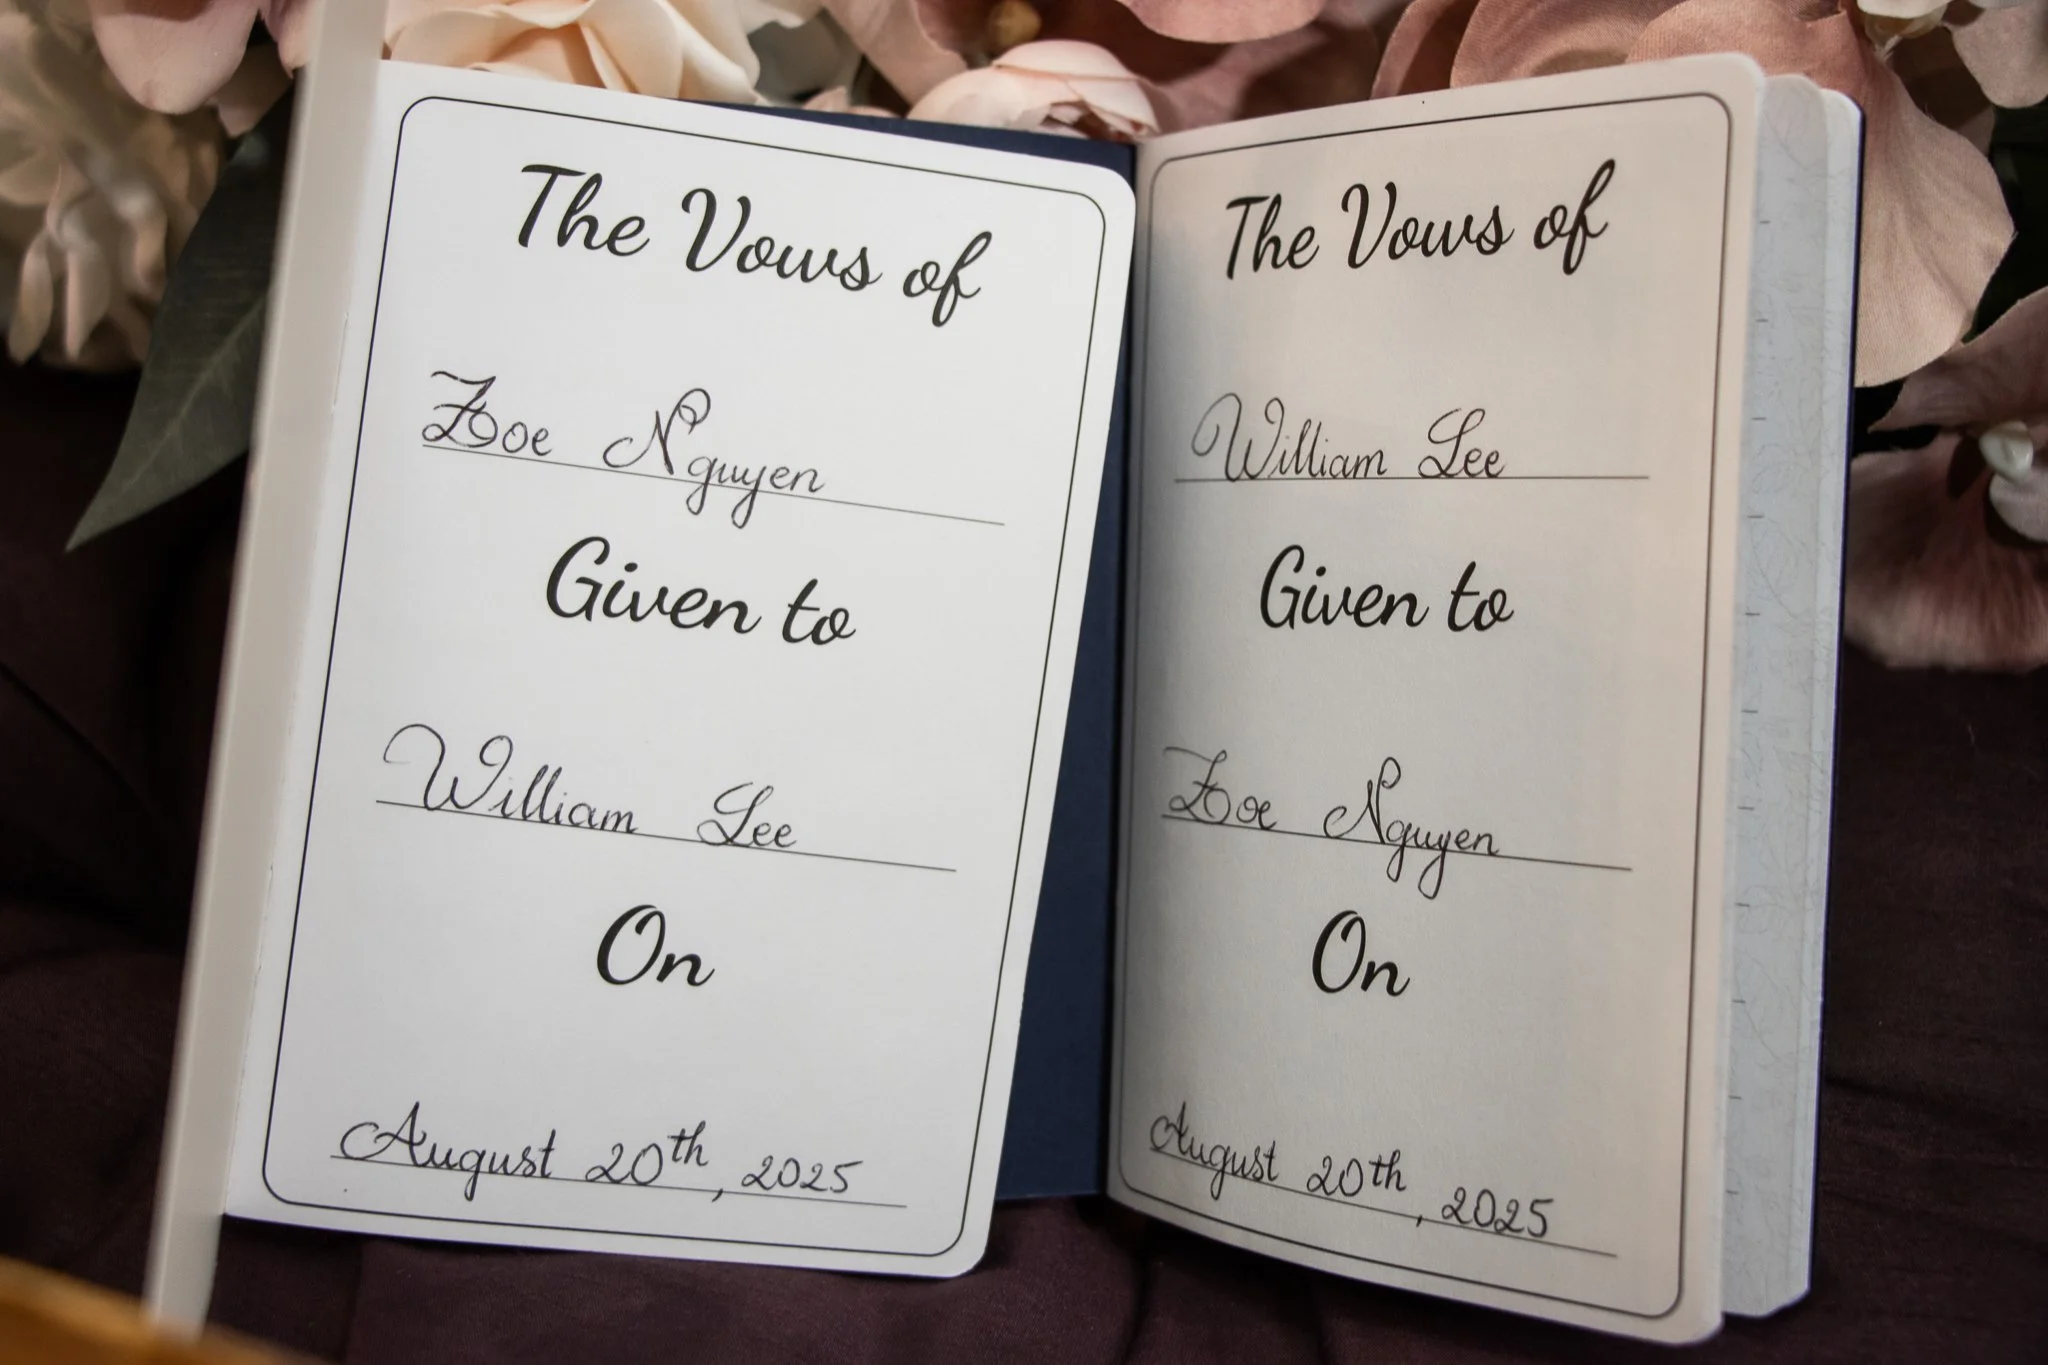 The Vows of
Zoe Nguyen
Given to
William Lee
On
August 20th, 2025
The Vows of
William Lee
Given to
Zoe Nguyen
On
August 20th, 2025